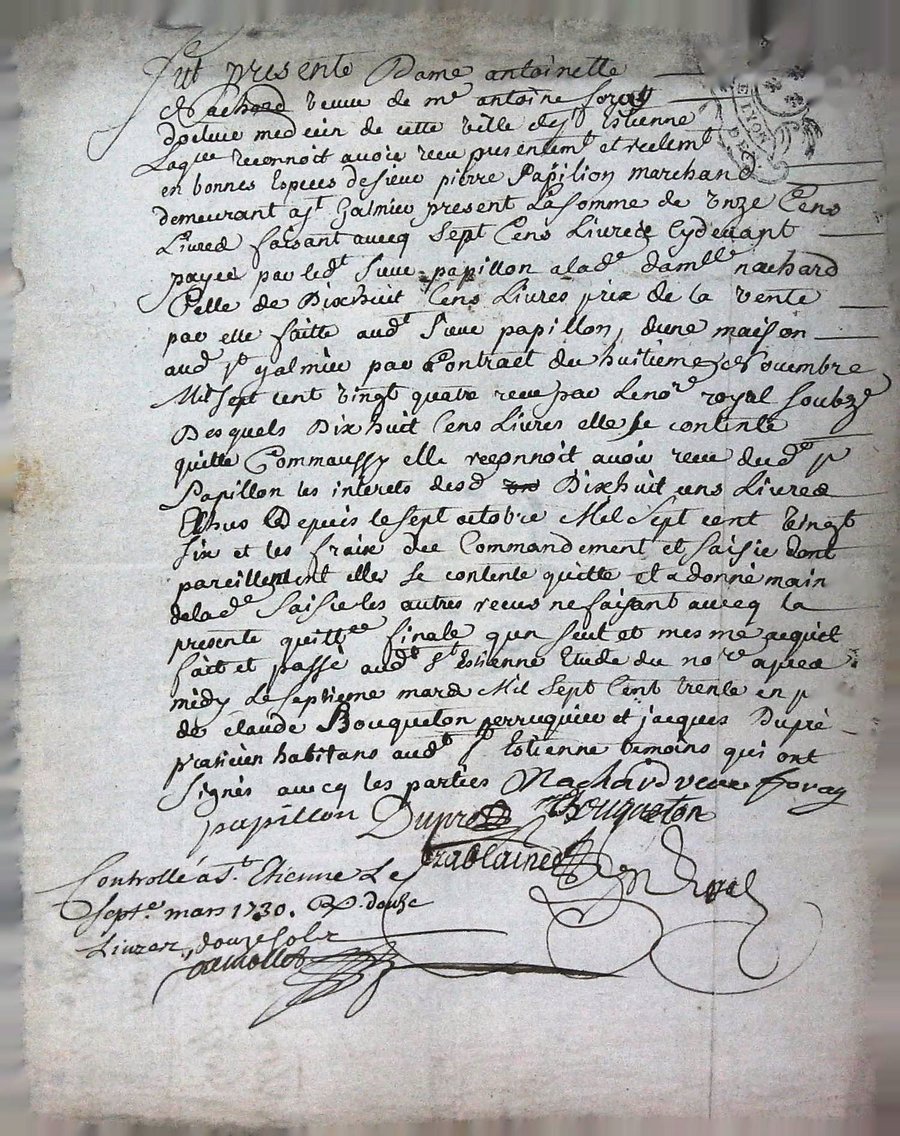 Fut presente Dame antoinette
Nachard veuve de mᵉ antoine foray
docteur medecin de cette ville de sᵗ Estienne
Laqᵘᵉ reconnoit avoir receu presentemᵗ et reelemᵗ
en bonnes Especes de sieur pierre Papilion marchand
demeurant a sᵗ Galmier present La somme de onze Cens
Livres faisant avecq Sept Cens Livres Cydevant
payee par ledᵗ Sieur papillon a lad.ᵉ damˡˡᵉ nachard
Celle de Dixhuit Cens Livres prix de la vente
par elle faitte audᵗ Sieur papillon, d'une maison
aud sᵗ galmier par Contract du huitieme Novembre
Mil sept cent vingt quatre receu par Le noʳᵉ royal soubz.ᵉ
Desquels Dixhuit Cens Livres elle se contente
quitte Comm'aussy elle reconnoit avoir receu dud. sʳ
Papillon les interets desd Dixhuit cens Livres
Echus Depuis le sept octobre Mil Sept cent vingt
six et les fraix de Commandement et saisie dont
pareillement elle se contente quitte et a donné main
de lad.ᵉ Saisie les autres receus ne faisant avecq la
presente quittᶜᵉ finale qu'un seul et mesme acquit
fait et passé audᵗ Sᵗ Estienne Etude du noʳᵉ apres
midy le septieme mars Mil Sept Cent trente en p
de claude Bouqueton perruquier et jacques Dupré
praticien habitans audᵗ Sᵗ Estienne temoins qui ont
signés avecq les parties Nachard veuve foray
papillon Dupré Bouqueton
Controllé a Sᵗ. Etienne Le
septᵉ. mars 1730. R. douze
Livres, douze sols
LYON